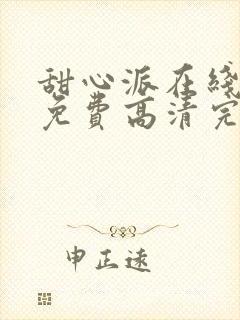 甜心派在线
免费高清完
申正远